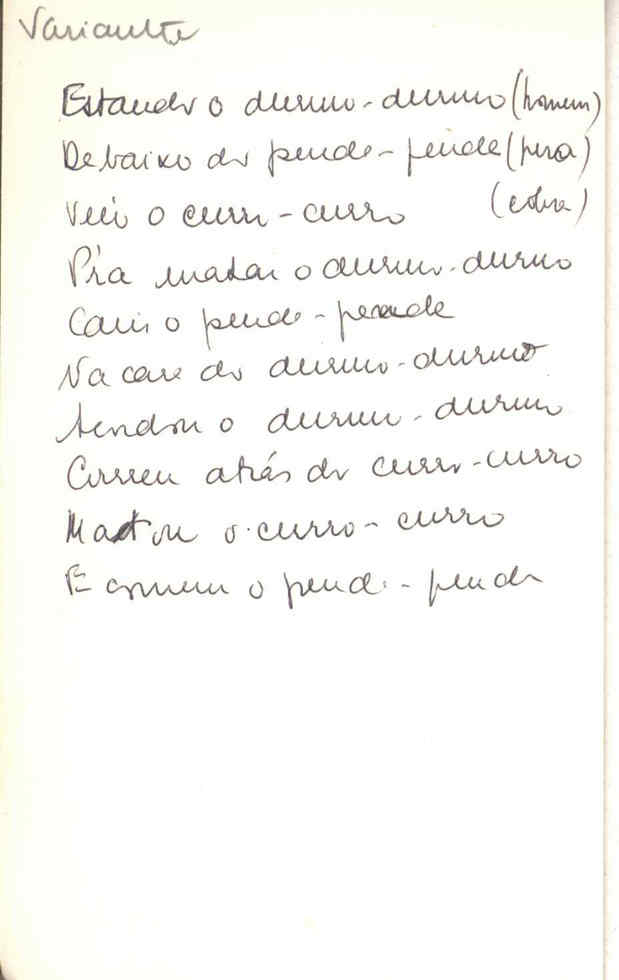 Variante
Estando o durmo-durmo (homem)
Debaixo do pende-pende (pera)
Veio o curro-curro (cobra)
P'ra matar o durmo-durmo
Caiu o pende-pende
Na cara do durmo-durmo
Acordou o durmo-durmo
Correu atrás do curro-curro
Matou o curro-curro
E comeu o pende-pende